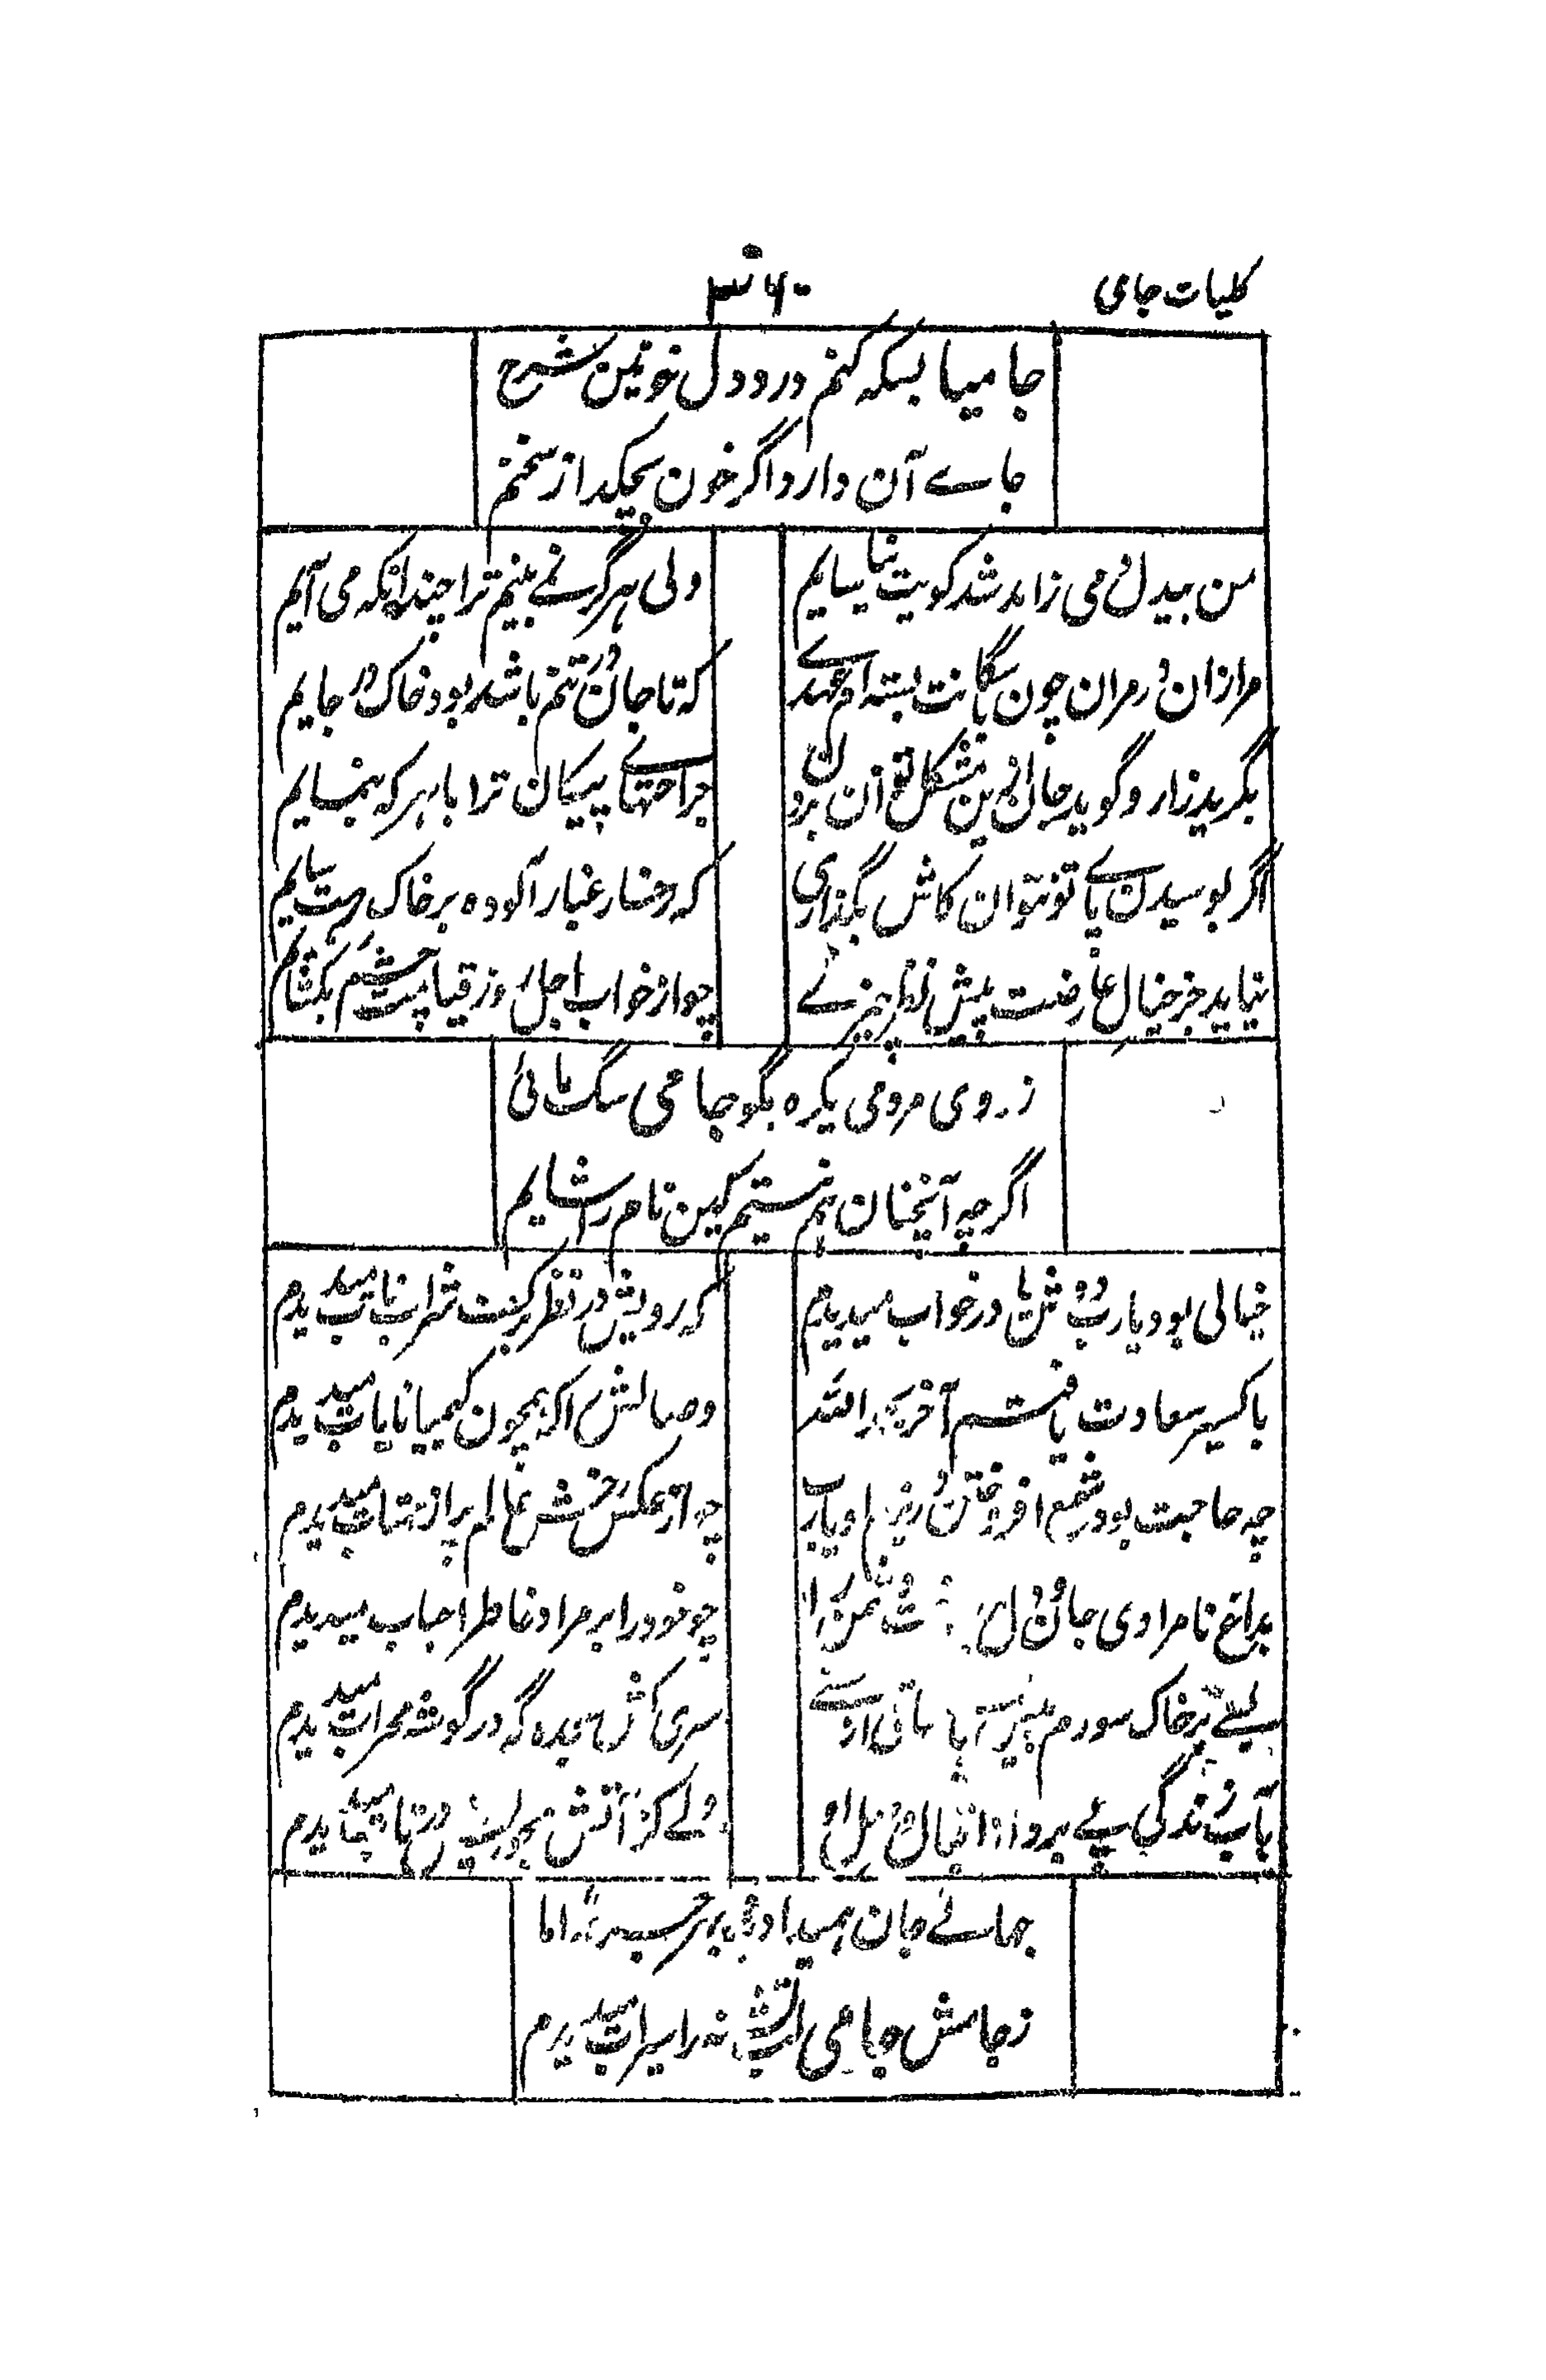 کلیات جامی
۳۶۰
جامیا بسکه کنم درد دل خونین شرح
جاے آن دارد اگر خون بچکد از سخنم
من بیدل می زاید شد کویت
ولی هرگز نے بینم ترا چندانکه می آیم
مرا زان در مران چون با سگانت بسته ام عهدے
که تا جان در تنم باشد بود خاک درت جایم
بگرید زار و گوید جان ازین مشکل توان بردن
جراحتهاے پیکان ترا با هر که بنمایم
اگر بوسیدن پاے تو نتوان کاش بگذاری
که رخسار غبار آلوده بر خاک رهت سایم
نیاید جز خیال عارضت پیش نظر چیزے
چو از خواب اجل روز قیامت چشم بکشایم
ز روی مردمی یکره بگو جامی سگ مائی
اگرچه آنچنان هم نیستم کین نام را شایم
خیالی بود یارب دوش یا در خواب میدیدم
که رویش در نظر بر کف شراب ناب میدیدم
باکسیر سعادت یافتم آخر بحمد الله
وصالش را که همچون کیمیا نایاب میدیدم
چه حاجت بود شمع افروختن در بزم او یارب
چه از عکس رخش عالم پر از مهتاب میدیدم
بداغ نامرادی جان و دل دشمنان را
چو خود را بر مراد خاطر احباب میدیدم
بسے بر خاک سودم پیش
سری کش سجده گه در گوشه محراب میدیدم
بآب زندگی پے برد از اقبال وصل او
ولے کز آتش هجرش در تاب میدیدم
جهانے جان همیداد
ز جامش جامی لب تشنه را سیراب میدیدم